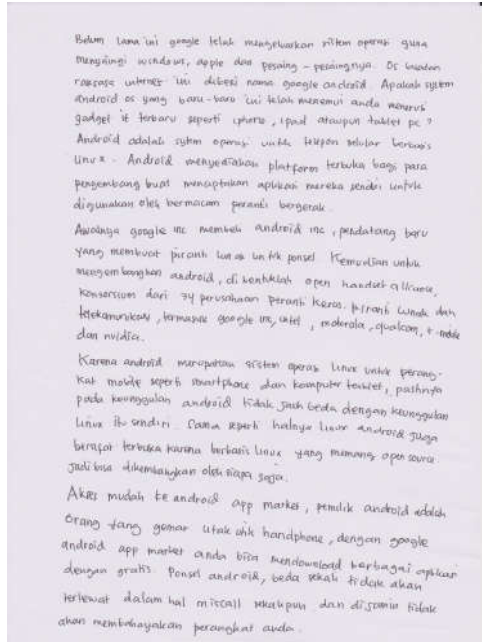 Belum lama ini google telah mengeluarkan sistem operasi guna
menyaingi windows, apple dan pesaing-pesaingnya. Os buatan
raksasa internet ini diberi nama google android. Apakah system
android os yang baru-baru ini telah menemui anda menerus
gadget it terbaru seperti iphone, ipad ataupun tablet pc ?
Android adalah sytem operasi untuk telepon selular berbasis
linux. Android menyediakan platform terbuka bagi para
pengembang buat menciptakan aplikasi mereka sendiri untuk
digunakan oleh bermacam peranti bergerak.
Awalnya google inc membeli android inc, pendatang baru
yang membuat piranti lunak untuk ponsel. Kemudian untuk
mengembangkan android, di bentuklah open handset alliance,
konsorsium dari 34 perusahaan peranti keras, piranti lunak dan
telekomunikasi, termasuk google inc, intel, motorola, qualcom, t-mobile
dan nvidia.
Karena android merupakan sistem operasi linux untuk perang-
kat mobile seperti smartphone dan komputer teablet, pastinya
pada keunggulan android tidak jauh beda dengan keunggulan
linux itu sendiri. Sama seperti halnya linux android juga
bersifat terbuka karena berbasis linux yang memang open source
jadi bisa dikembangkan oleh siapa saja.
Akses mudah ke android app market, pemilik android adalah
orang yang gemar utak atik handphone, dengan google
android app market anda bisa mendownload berbagai aplikasi
dengan gratis. Ponsel android, beda sekali tidak akan
terlewat dalam hal miscall sekalipun dan dijamin tidak
akan membahayakan perangkat anda.